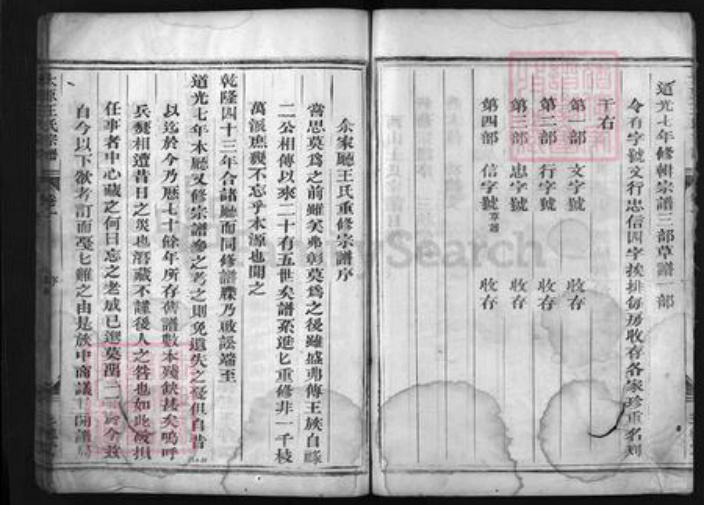 道光七年修輯宗譜三部草譜一部
今有字號文行忠信四字挨排每房收存各家珍重名列
于右
第一部 文字號 收存
第二部 行字號 收存
第三部 忠字號 收存
第四部 信字號草譜 收存
余家廳王氏重修宗譜序
嘗思莫為之前雖美弗彰莫為之後雖盛弗傳王族自
二公相傳以來二十有五世矣譜系迭七重修非一千枝
萬派庶幾不忘乎木源也聞之
乾隆四十三年合諸廳而同修譜牒乃啟訟端至
道光七年本廳又修宗譜參之考之則免遺失之憂但自昔
以迄於今乃歷七十餘年所存舊譜數本殘缺甚矣嗚呼
兵燹相遭昔日之災也潛藏不謹後人之咎也如此破損
任事者中心藏之何日忘之老成已 於今茲
自今以下欲考訂而戞七難之由是族中商議 開譜
王氏宗譜
FamilySearch